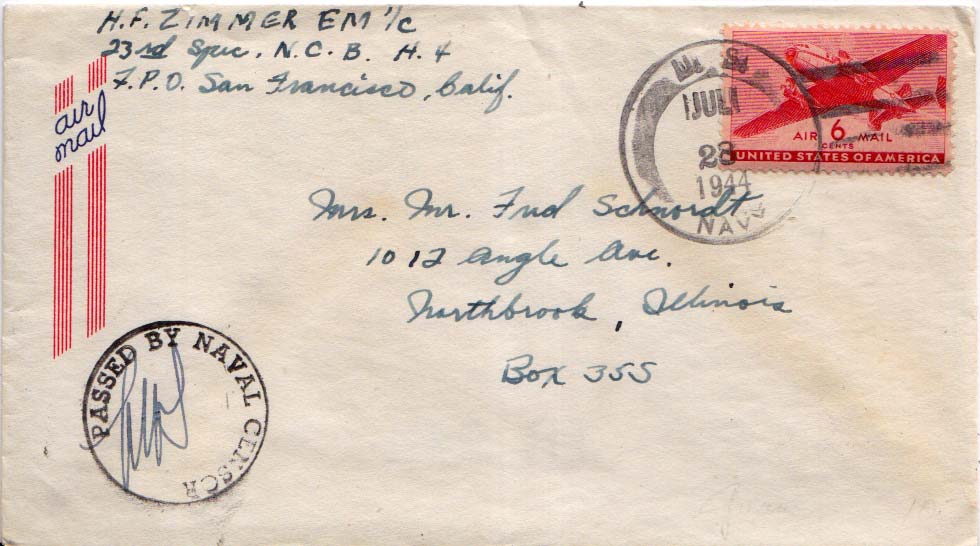 H.F. ZIMMER EM 1/c
23rd Spec. N.C.B. H.4
F.P.O. San Francisco, Calif.
air
mail
U.S.
JUL
28
1944
NAVY
AIR 6 MAIL
CENTS
UNITED STATES OF AMERICA
Mrs. Mr. Fred Schnordt
1012 Angle Ave.
Northbrook, Illinois
Box 355
PASSED BY NAVAL CENSOR